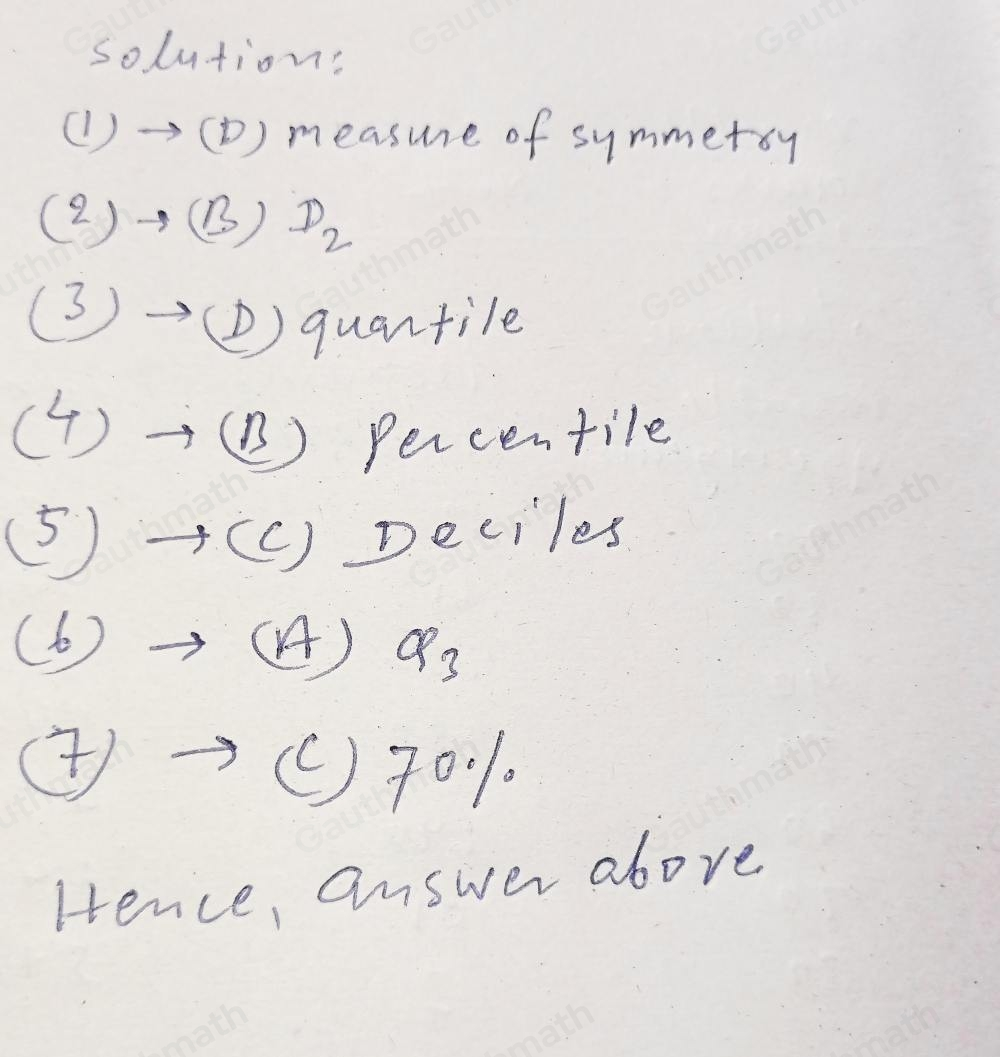 solution:
(1) → (D) measure of symmetry
(2) → (B) D₂
(3) → (D) quartile
(4) → (B) Percentile
(5) → (C) Deciles
(6) → (A) Q₃
(7) → (C) 70%
Hence, answer above